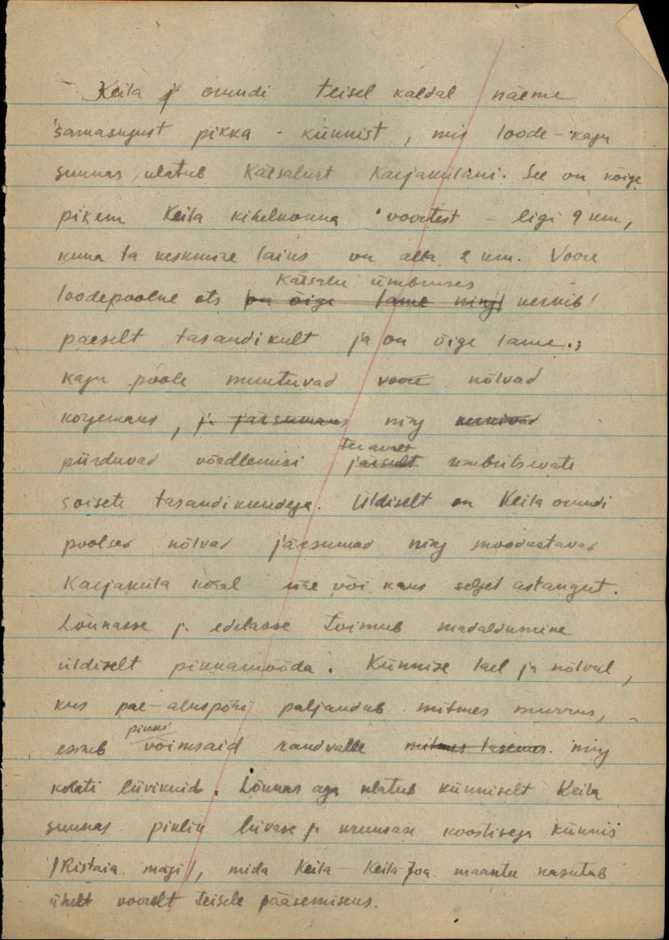 Keila j. orundi teisel kaldal näeme
samasugust pikka künnist, mis loode-kagu
suunas ulatub Kätsalust Karjakülani. See on kõige
pikem Keila kihelkonna voortest – ligi 9 km,
kuna ta keskmine laius on alla 2 km. Voore
Kätsalu ümbruses
loodepoolne ots on õige lame ning kerkib
paeselt tasandikult ja on õige lame.;
kagu poole muutuvad voore nõlvad
kõrgemaks, ja järsumaks ning kerkivad
teravalt
piirduvad võrdlemisi järsult ümbritsevate
soiste tasandikkudega. Üldiselt on Keila orundi
poolsed nõlvad järsumad ning moodustavad
Karjaküla kohal üke või kaks selget astangut.
Lõunasse ja edelasse toimub madaldumine
üldiselt pikkamööda. Künnise lael ja nõlval,
kus pae-aluspõhi paljandub mitmes murrus,
pikki
esineb võimsaid randvalle mitmes tasemes ning
kohati liivikuid. Lõunas aga ulatub künniselt Keila
suunas piklik liivase ja kruusase koostisega künnis
/Ristaia mägi/, mida Keila – Keila-Joa maantee kasutab
ühelt voorelt teisele pääsemiseks.